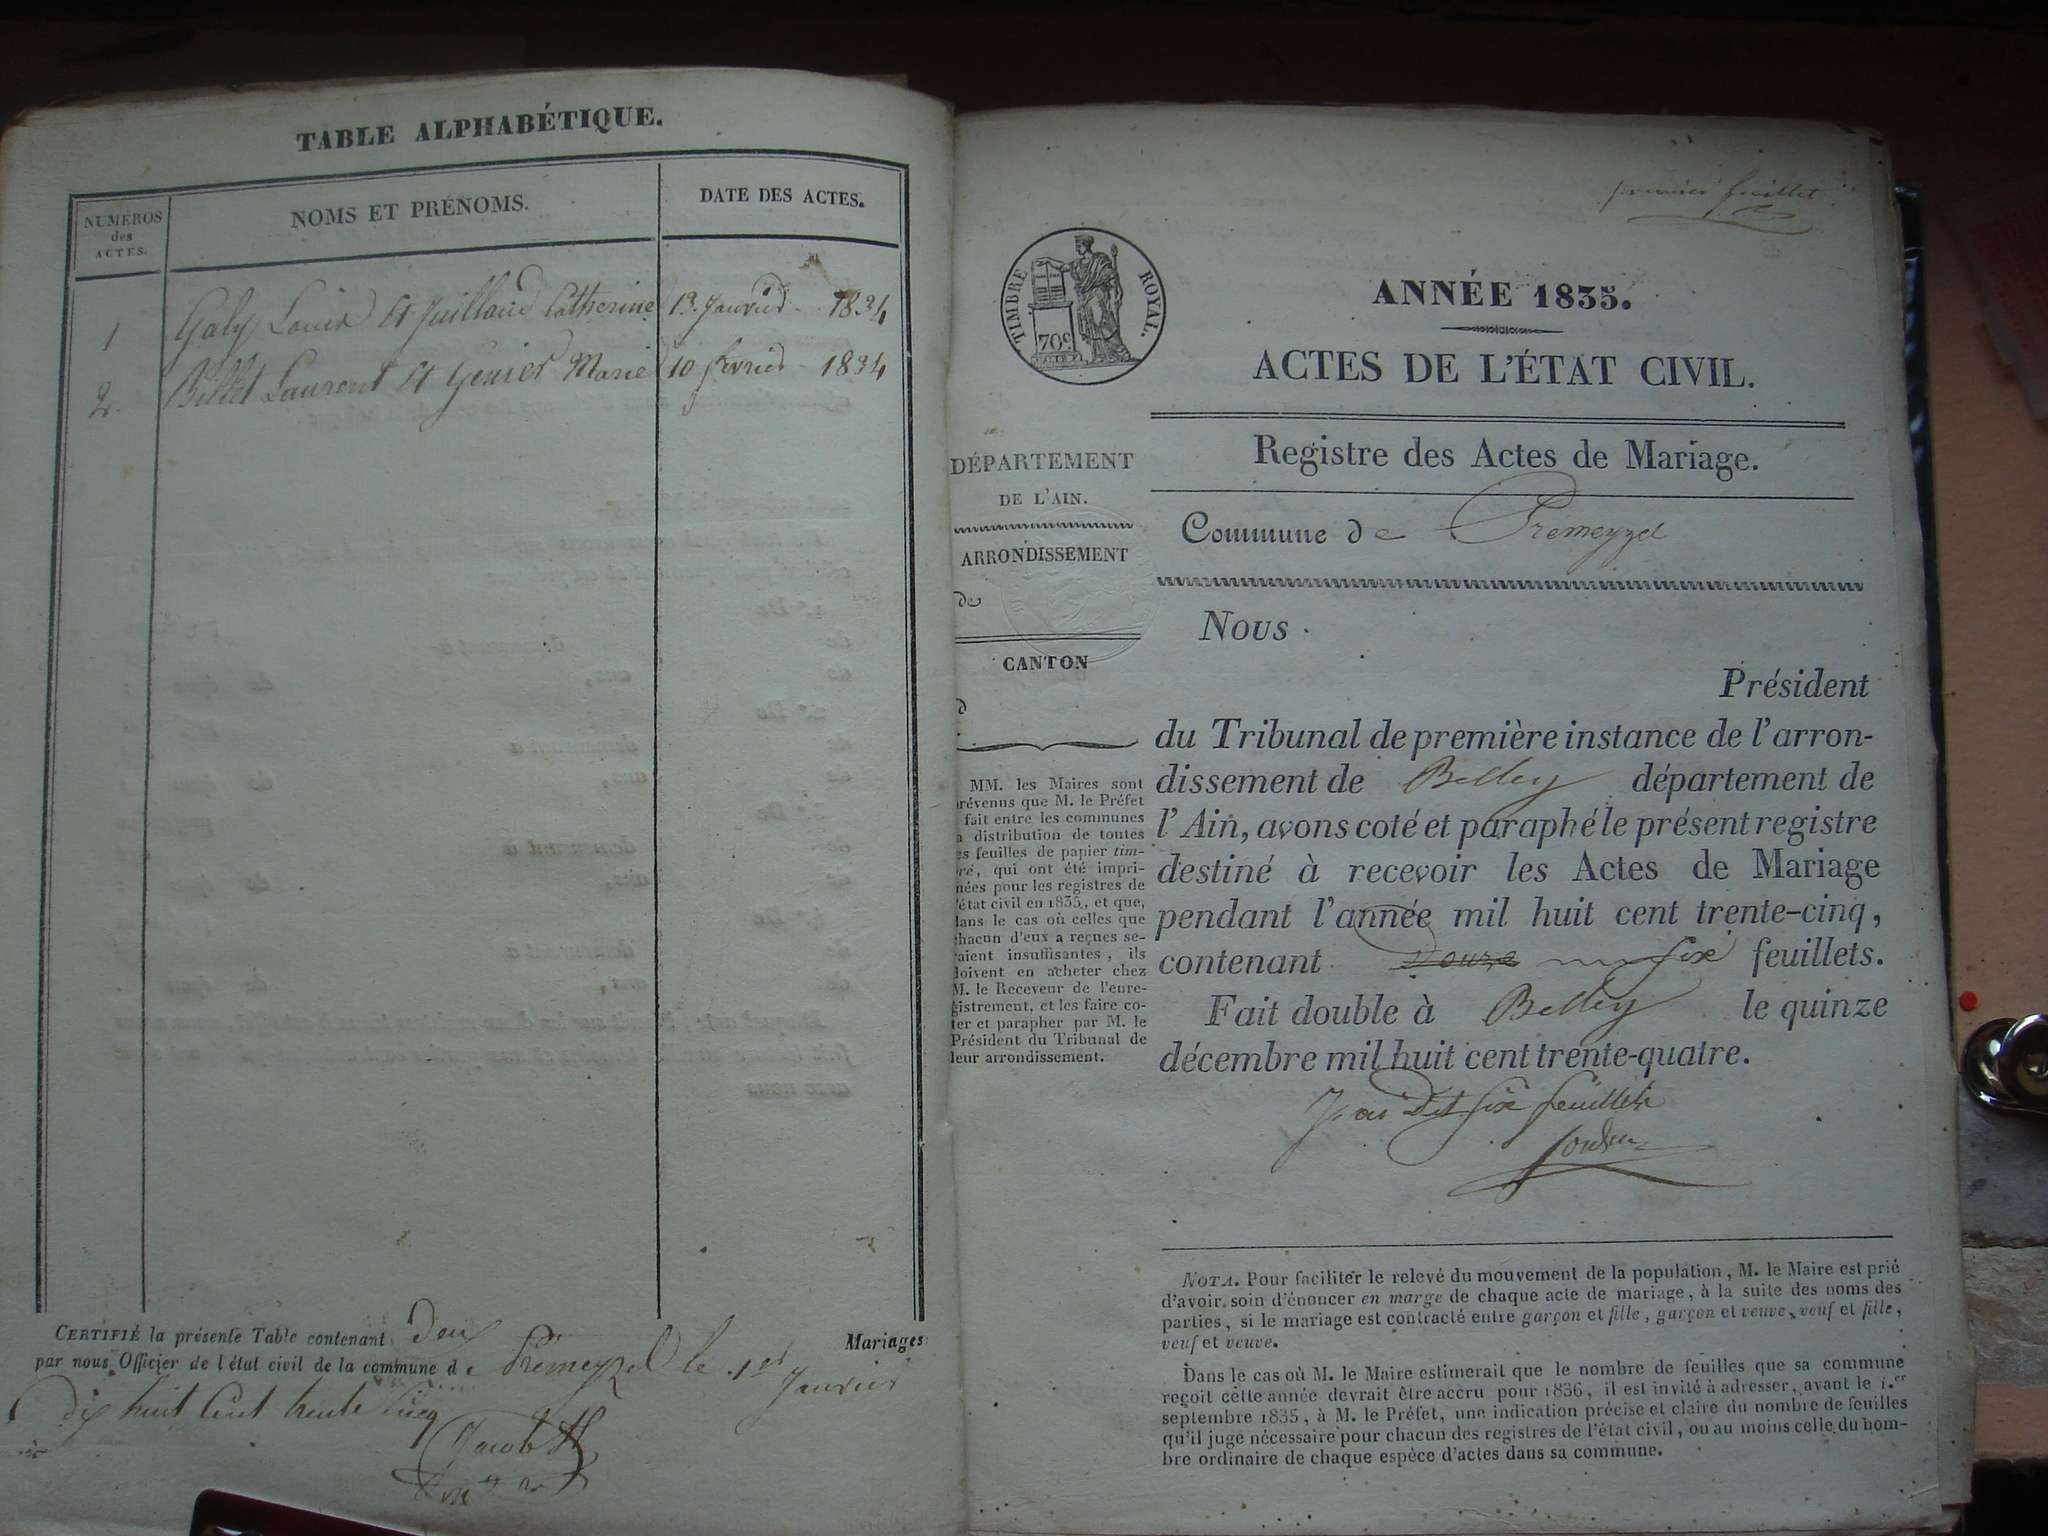 TABLE ALPHABÉTIQUE.
NUMÉROS
des
ACTES.
NOMS ET PRÉNOMS.
DATE DES ACTES.
1 Galy Louis et Juilland Catherine 13. Janvier 1834
2. Billet Laurent et Genier Marie 10 février 1834
CERTIFIÉ la présente Table contenant deux Mariages
par nous Officier de l'état civil de la commune de Premeyzel le 1er Janvier
dix huit cent trente cinq
Jacob
premier feuillet
TIMBRE ROYAL.
70c
ANNÉE 1835.
ACTES DE L'ÉTAT CIVIL.
Registre des Actes de Mariage.
DÉPARTEMENT
DE L'AIN.
ARRONDISSEMENT
de
CANTON
d
Commune de Premeyzel
MM. les Maires sont
prévenus que M. le Préfet
fait entre les communes
la distribution de toutes
les feuilles de papier tim-
bré, qui ont été impri-
mées pour les registres de
l'état civil en 1835, et que,
dans le cas où celles que
chacun d'eux a reçues se-
raient insuffisantes, ils
doivent en acheter chez
M. le Receveur de l'enre-
gistrement, et les faire co-
ter et parapher par M. le
Président du Tribunal de
leur arrondissement.
Nous
Président
du Tribunal de première instance de l'arron-
dissement de Belley département de
l'Ain, avons coté et paraphé le présent registre
destiné à recevoir les Actes de Mariage
pendant l'année mil huit cent trente-cinq,
contenant douze six feuillets.
Fait double à Belley le quinze
décembre mil huit cent trente-quatre.
J'ai dit six feuillets
NOTA. Pour faciliter le relevé du mouvement de la population, M. le Maire est prié
d'avoir soin d'énoncer en marge de chaque acte de mariage, à la suite des noms des
parties, si le mariage est contracté entre garçon et fille, garçon et veuve, veuf et fille,
veuf et veuve.
Dans le cas où M. le Maire estimerait que le nombre de feuilles que sa commune
reçoit cette année devrait être accru pour 1836, il est invité à adresser, avant le 1.er
septembre 1835, à M. le Préfet, une indication précise et claire du nombre de feuilles
qu'il juge nécessaire pour chacun des registres de l'état civil, ou au moins celle du nom-
bre ordinaire de chaque espèce d'actes dans sa commune.